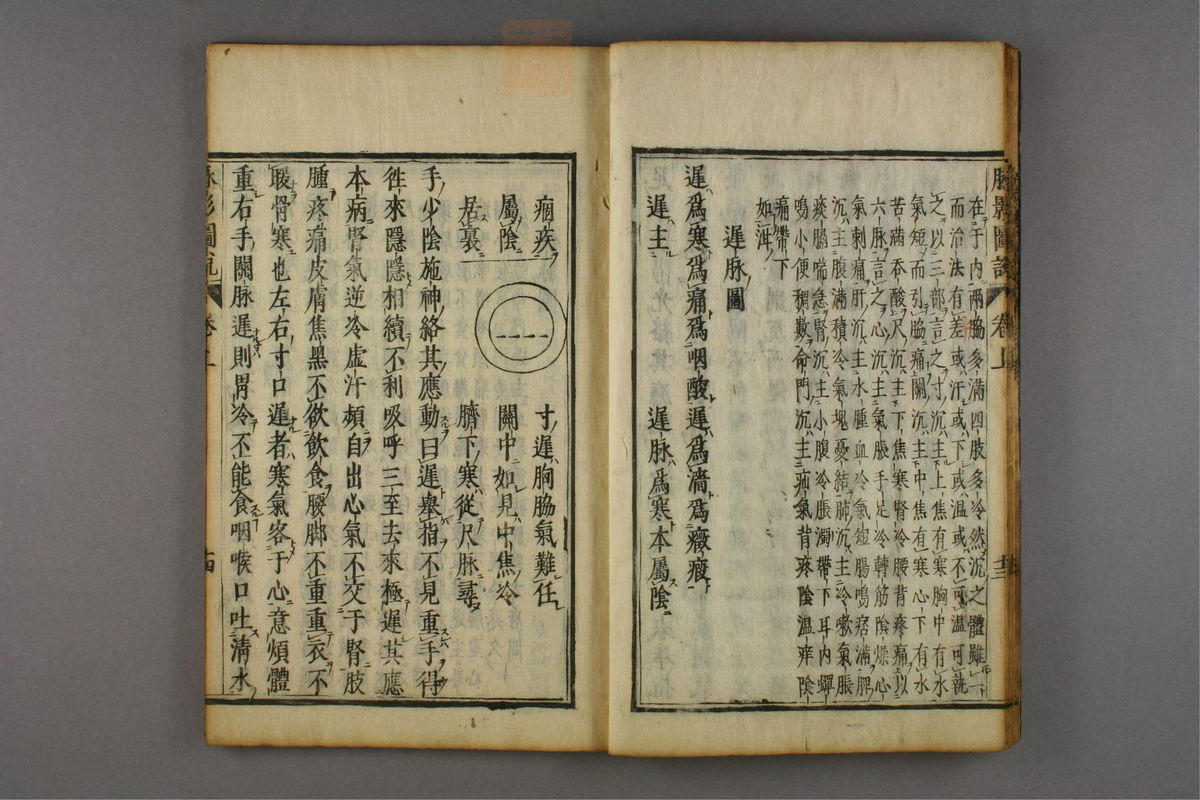 脉影圖說 卷上
在于內兩脇多滿四肢多冷然沉之體雖一
而治法有差或汗或下或温或不可温可就
之以三部言之寸沉主上焦有寒胸中有水
氣短而引脇痛關沉主中焦有寒心下有水
苦滿吞酸尺沉主下焦寒腎冷腰背疼痛以
六脉言之心沉主氣脹手足冷轉筋陰燥心
氣刺痛肝沉主水腫血冷氣短腸鳴痞滿脾
沉主腹滿積冷氣塊憂結肺沉主冷嗽氣脹
痰膈喘急腎沉主小腹冷脹濁帶下耳內蟬
鳴小便稠數命門沉主疝氣背疼陰温痒陰
痛帶下
如洱
遲脉圖
遲爲寒爲痛爲咽酸遲爲濇爲癥瘕
遲主 遲脉爲寒本屬陰
十三
痼疾 寸遲胸脇氣難任
屬陰 關中如見中焦冷
居裏 臍下寒從尺脉尋
手少陰施神絡其應動曰遲舉指不見重手得
徃來隱隱相續不利吸呼三至去來極遲其應
本病腎氣逆冷虛汗頻自出心氣不交于腎肢
腫疼痛皮膚焦黑不欲飲食腰脚不重重衣不
暖骨寒也左右寸口遲者寒氣客于心意煩體
重右手關脉遲則胃冷不能食咽喉口吐清水
十四